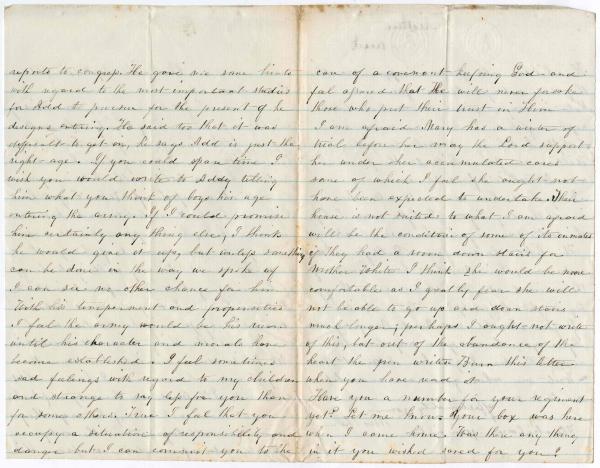 reports to congress. He gave me some hints
with regard to the most important studies
for Add to pursue for the present if he
designs entering. He said too that it was
difficult to get in, he says Add is just the
right age. If you could spare time I
wish you would write to Addy telling
him what you think of boys his age
entering the army. If I could promise
him certainly any thing else, I think
he would give it up, but unless something
can be done in the way we spoke of
I can see no other chance for him
With his temperament and propensities
I feel the army would be his ruin
until his character and morals have
become established. I feel sometimes
sad feelings with regard to my children
and strange to say less for you than
for some others. True I feel that you
occupy a situation of responsibility and
danger but I can commit you to the
care of a covenant keeping God and
feel assured that He will never forsake
those who put their trust in Him
I am afraid Mary has a winter of
trial before her may the Lord support
her under her accumulated cares
some of which I feel she ought not
have been expected to undertake. Their
house is not suited to what I am afraid
will be the condition of some of its inmates
if they had a room down stairs for
Mother White I think she would be more
comfortable as I greatly fear she will
not be able to go up and down stairs
much longer, perhaps I ought not write
of this, but out of the abundance of the
heart the pen writes. Burn this letter
when you have read it.
Have you a number for your regiment
yet? Let me know. Your box was here
when I came home. Was there any thing
in it you wished saved for you?